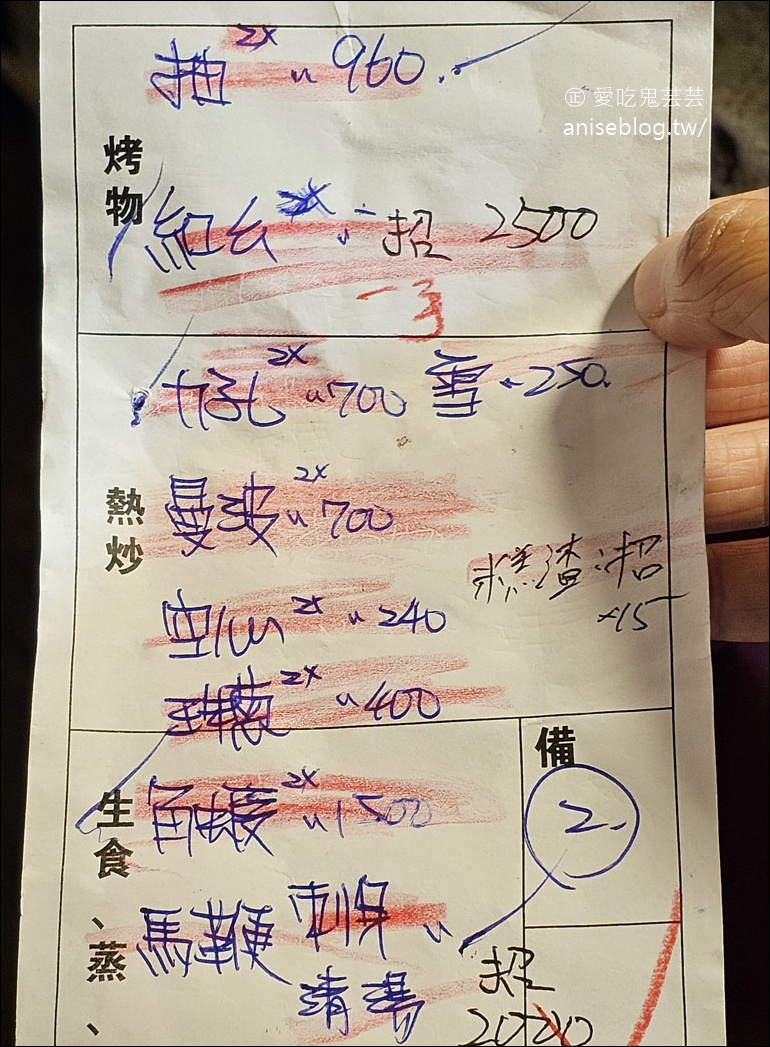 抽 2x 〃 960.
㊣ 愛吃鬼芸芸
aniseblog.tw/
烤物
紅 2x 招 2500
一手
九孔 2x 〃 700 雪 250.
熱炒
曼波 2x 〃 700
糕渣 招
x15
空心 2x 〃 240
2x 〃 400
備
2.
生食、蒸、
角蝦 2x 〃 1500
馬鞭 刺身 〃
清湯
招
2000